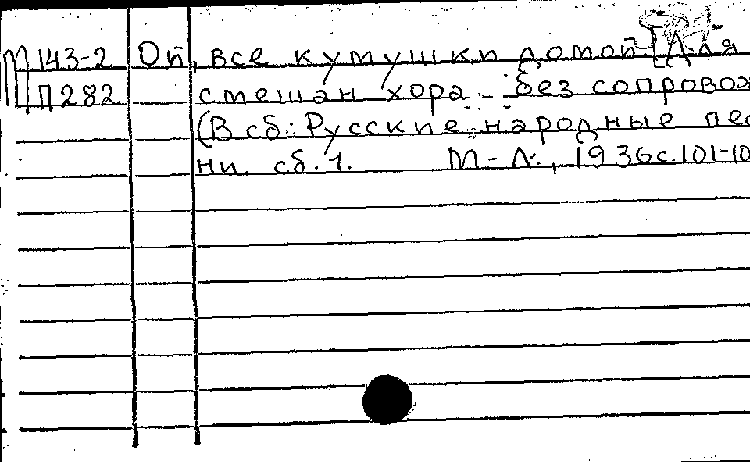 М143-2 Оп, все кумушки домой [Для
П282 смешан хора - без сопровож
(В сб.: Русские народные пес
ни. сб. 1. М-Л., 1936 с. 101-10